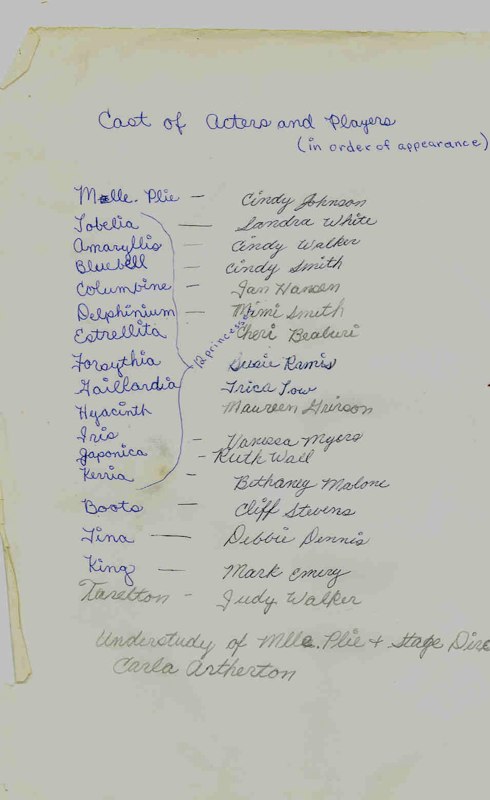 Cast of Acters and Players
(in order of appearance)
Mlle. Plie — Cindy Johnson
Lobelia — Sandra White
Amaryllis — Cindy Walker
Bluebell — Cindy Smith
Columbine — Jan Hansen
Delphinium — Mimi Smith
Estrellita Cheri
Forsythia Susie Ramis
Gaillardia Trica Low
Hyacinth Maureen
Iris — Vanessa Myers
Japonica - Ruth Wall
Kerria - Bethaney Malone
12 princesses
Boots — Cliff Stevens
Tina — Debbie Dennis
King — Mark Emery
Tarelton - Judy Walker
Understudy of Mlle. Plie + Stage Dire
Carla Artherton